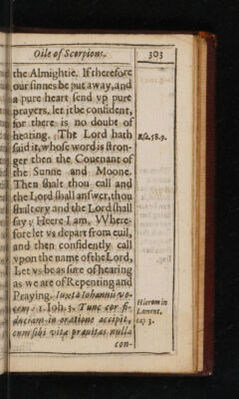 Oile of Scorpions. 303
the Almightie. If therefore
our sinnes be put away, and
a pure heart send vp pure
prayers, let it be confident,
for there is no doubt of
hearing. The Lord hath
said it, whose word is stron-
ger then the Couenant of
the Sunne and Moone.
Then shalt thou call and
the Lord shall answer, thou
shalt cry and the Lord shall
say; Heere I am. Where-
fore let vs depart from euil,
and then confidently call
vpon the name of the Lord,
Let vs be as sure of hearing
as we are of Repenting and
Praying. Iuxta Iohannis vo-
cem. 1. Ioh. 3. Tunc cor fi-
duciam in oratione accipit,
cum sibi vita prauitas nulla
con-
Esa. 58.9.
Hierom in
Lament.
cap 3.